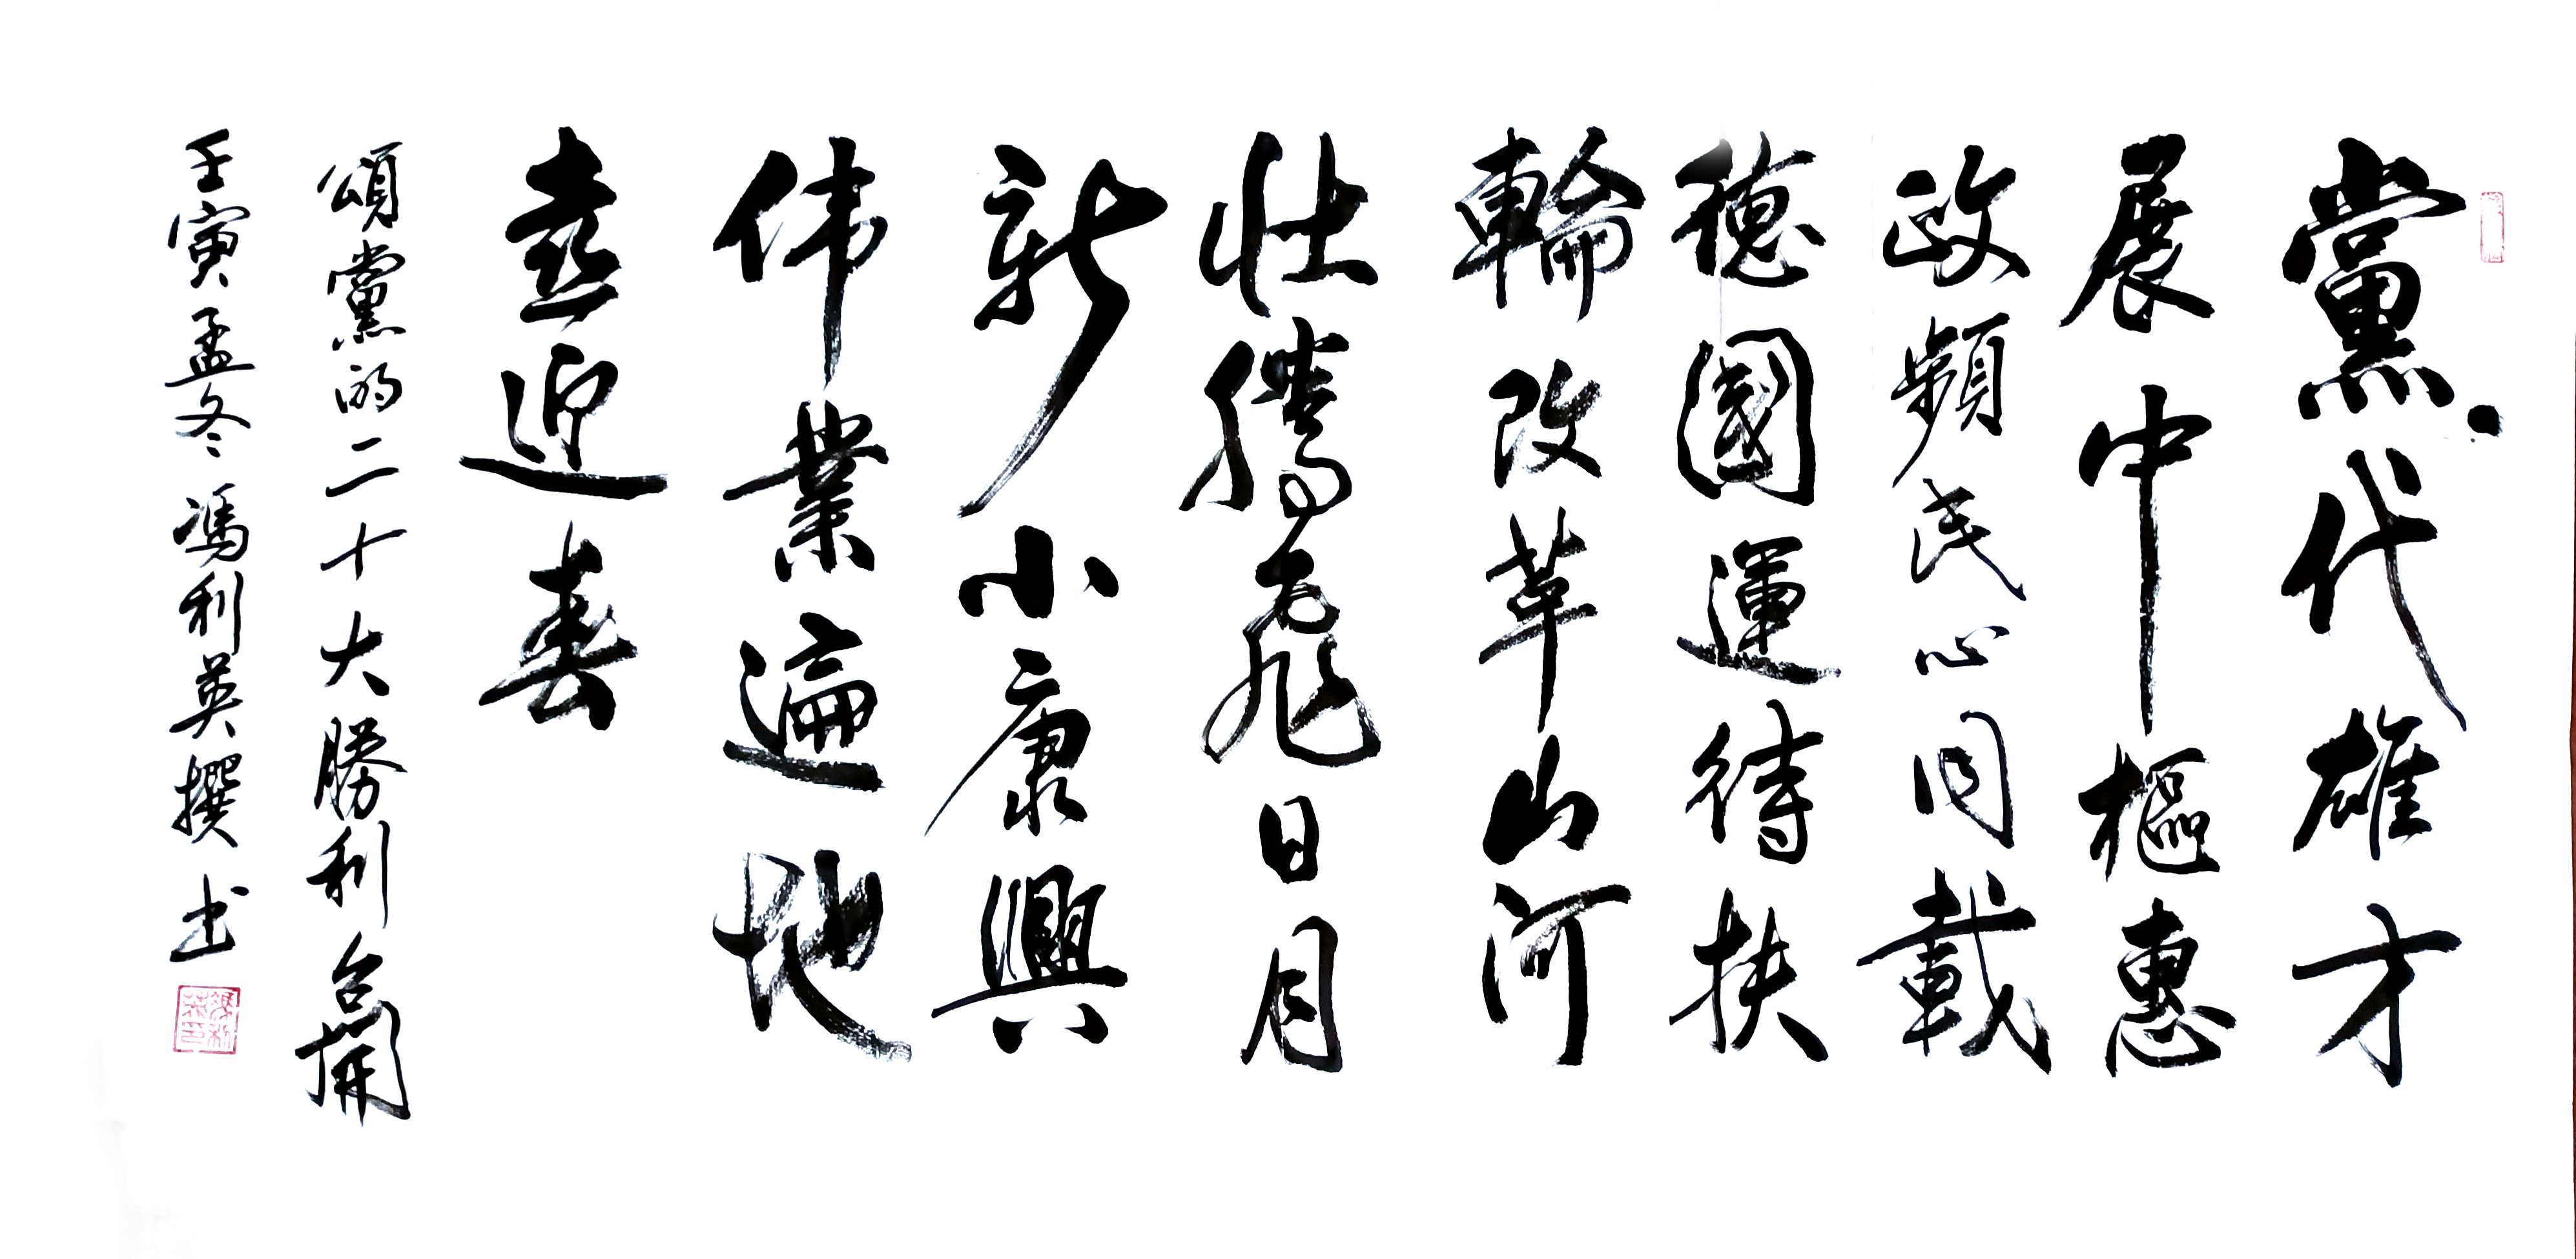 黨代雄才
展中樞惠
政頻民心同載
德國運待扶
輪改革山河
壯騰飛日月
新小康興
伟業遍地
喜迎春
頌黨的二十大勝利召開
壬寅孟冬馮利英撰书
馮利英印